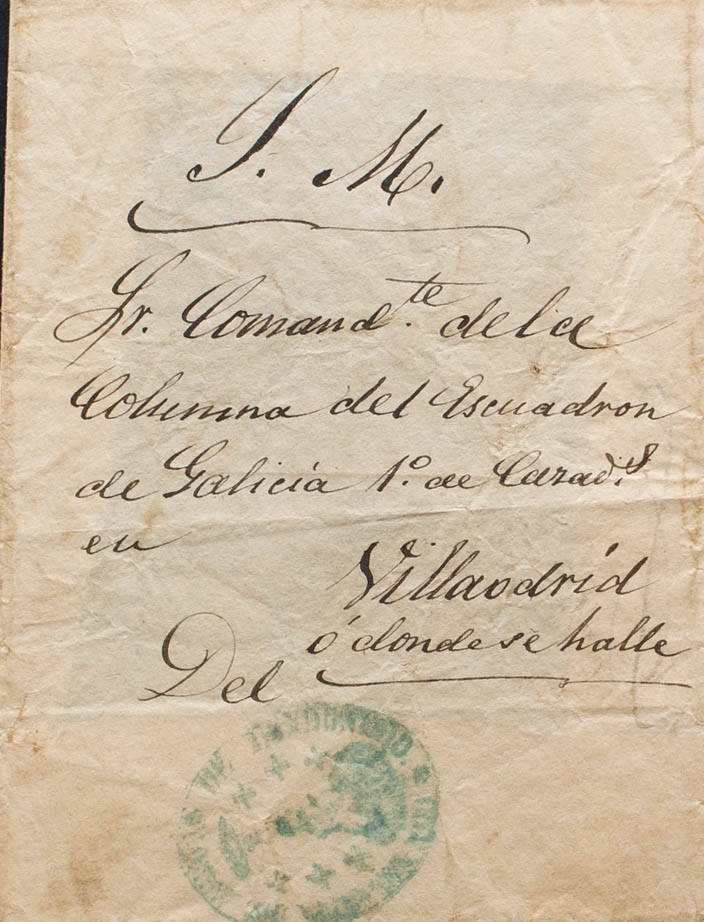 S. M.
Sr. Comand.te de la
Columna del Escuadron
de Galicia 1.º de Cazad.s
en
Villaodrid
ó donde se halle
Del